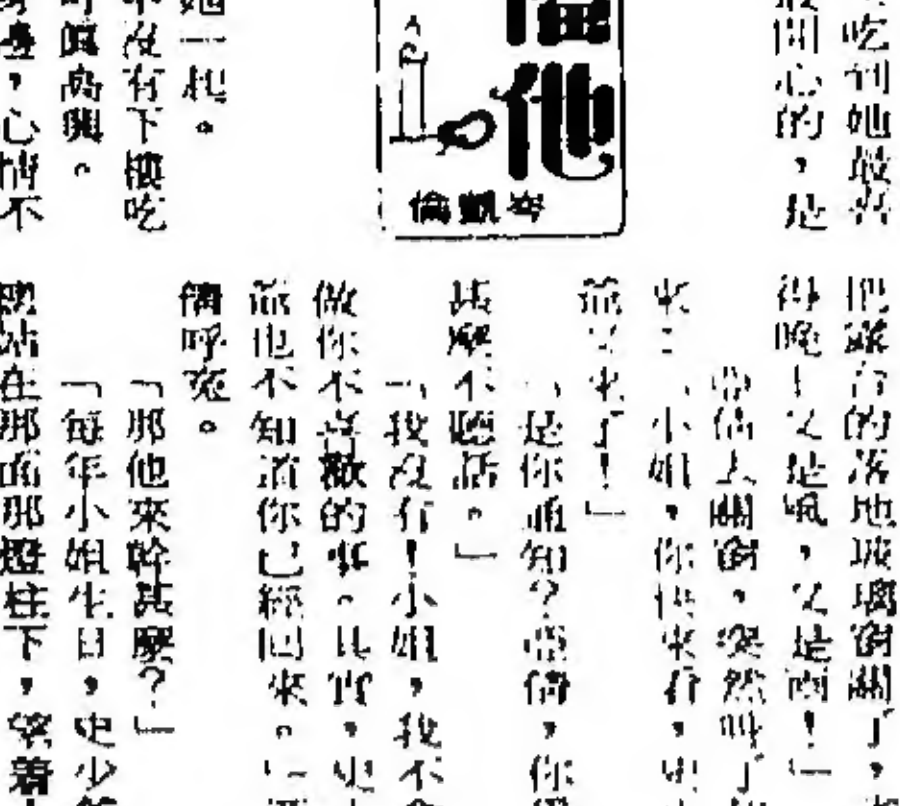 吃到她最喜
開心的，是
他
岑凱倫
她一起。
沒有下樓吃
真高興。
邊，心情不
把露台的落地玻璃窗關了，
得晚！又是風，又是雨！」
倩人關窗，突然叫了
「小姐，你快來看，史
爺又來了！」
「是你通知？倩，你
甚麼不聽話。」
「我沒有！小姐，我不
做你不喜歡的事。其實，史
爺也不知道你已經回來。」
倩呼冤。
「那他來幹甚麼？」
「每年小姐生日，史少
站在那面那燈柱下，望着